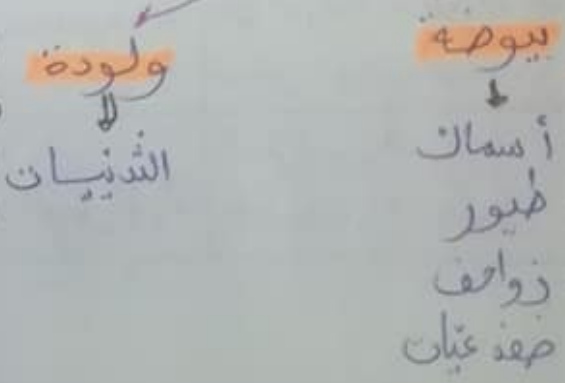 بيوضة
أسماك
طيور
زواحف
ضفدعيات
ولودة
الثدييات